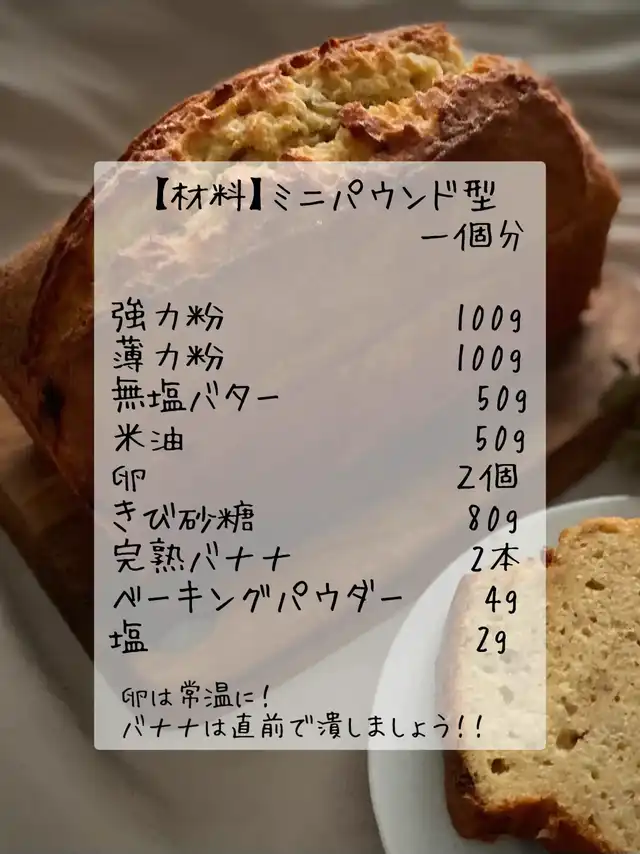 【材料】ミニパウンド型
一個分
強力粉 100g
薄力粉 100g
無塩バター 50g
米油 50g
卵 2個
きび砂糖 80g
完熟バナナ 2本
ベーキングパウダー 4g
塩 2g
卵は常温に!
バナナは直前で潰しましょう!!